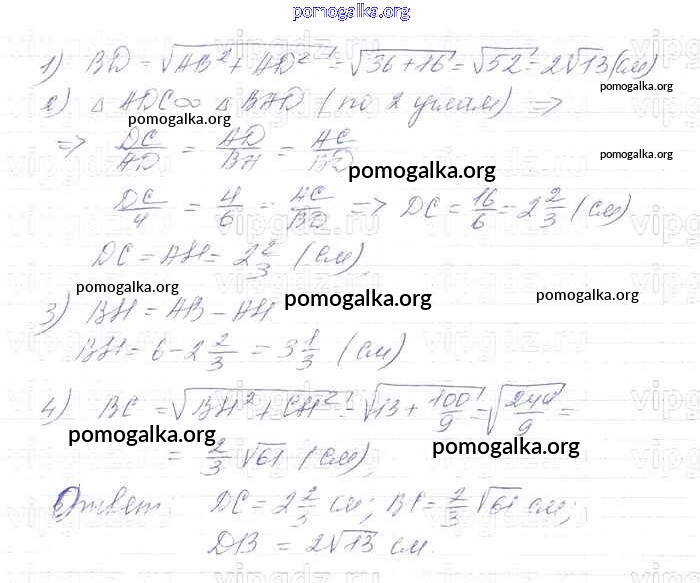 pomogalka.org
1) BD = √AB² + AD² = √36 + 16 = √52 = 2√13 (см)
2) △ ADC ∞ △ BAD (по 2 углам) =>
pomogalka.org
pomogalka.org
=> DC/AD = AD/BA = AC/BD
pomogalka.org
pomogalka.org
DC/4 = 4/6 = AC/BD => DC = 16/6 = 2 2/3 (см)
DC = AH = 2 2/3 (см)
pomogalka.org
pomogalka.org
pomogalka.org
3) BH = AB - AH
BH = 6 - 2 2/3 = 3 1/3 (см)
4) BC = √BH² + CH² = √13 + 100/9 = √244/9 =
pomogalka.org
pomogalka.org
= 2/3 √61 (см)
Ответ: DC = 2 2/3 см; BC = 2/3 √61 см;
DB = 2√13 см.
vipgdz.ru